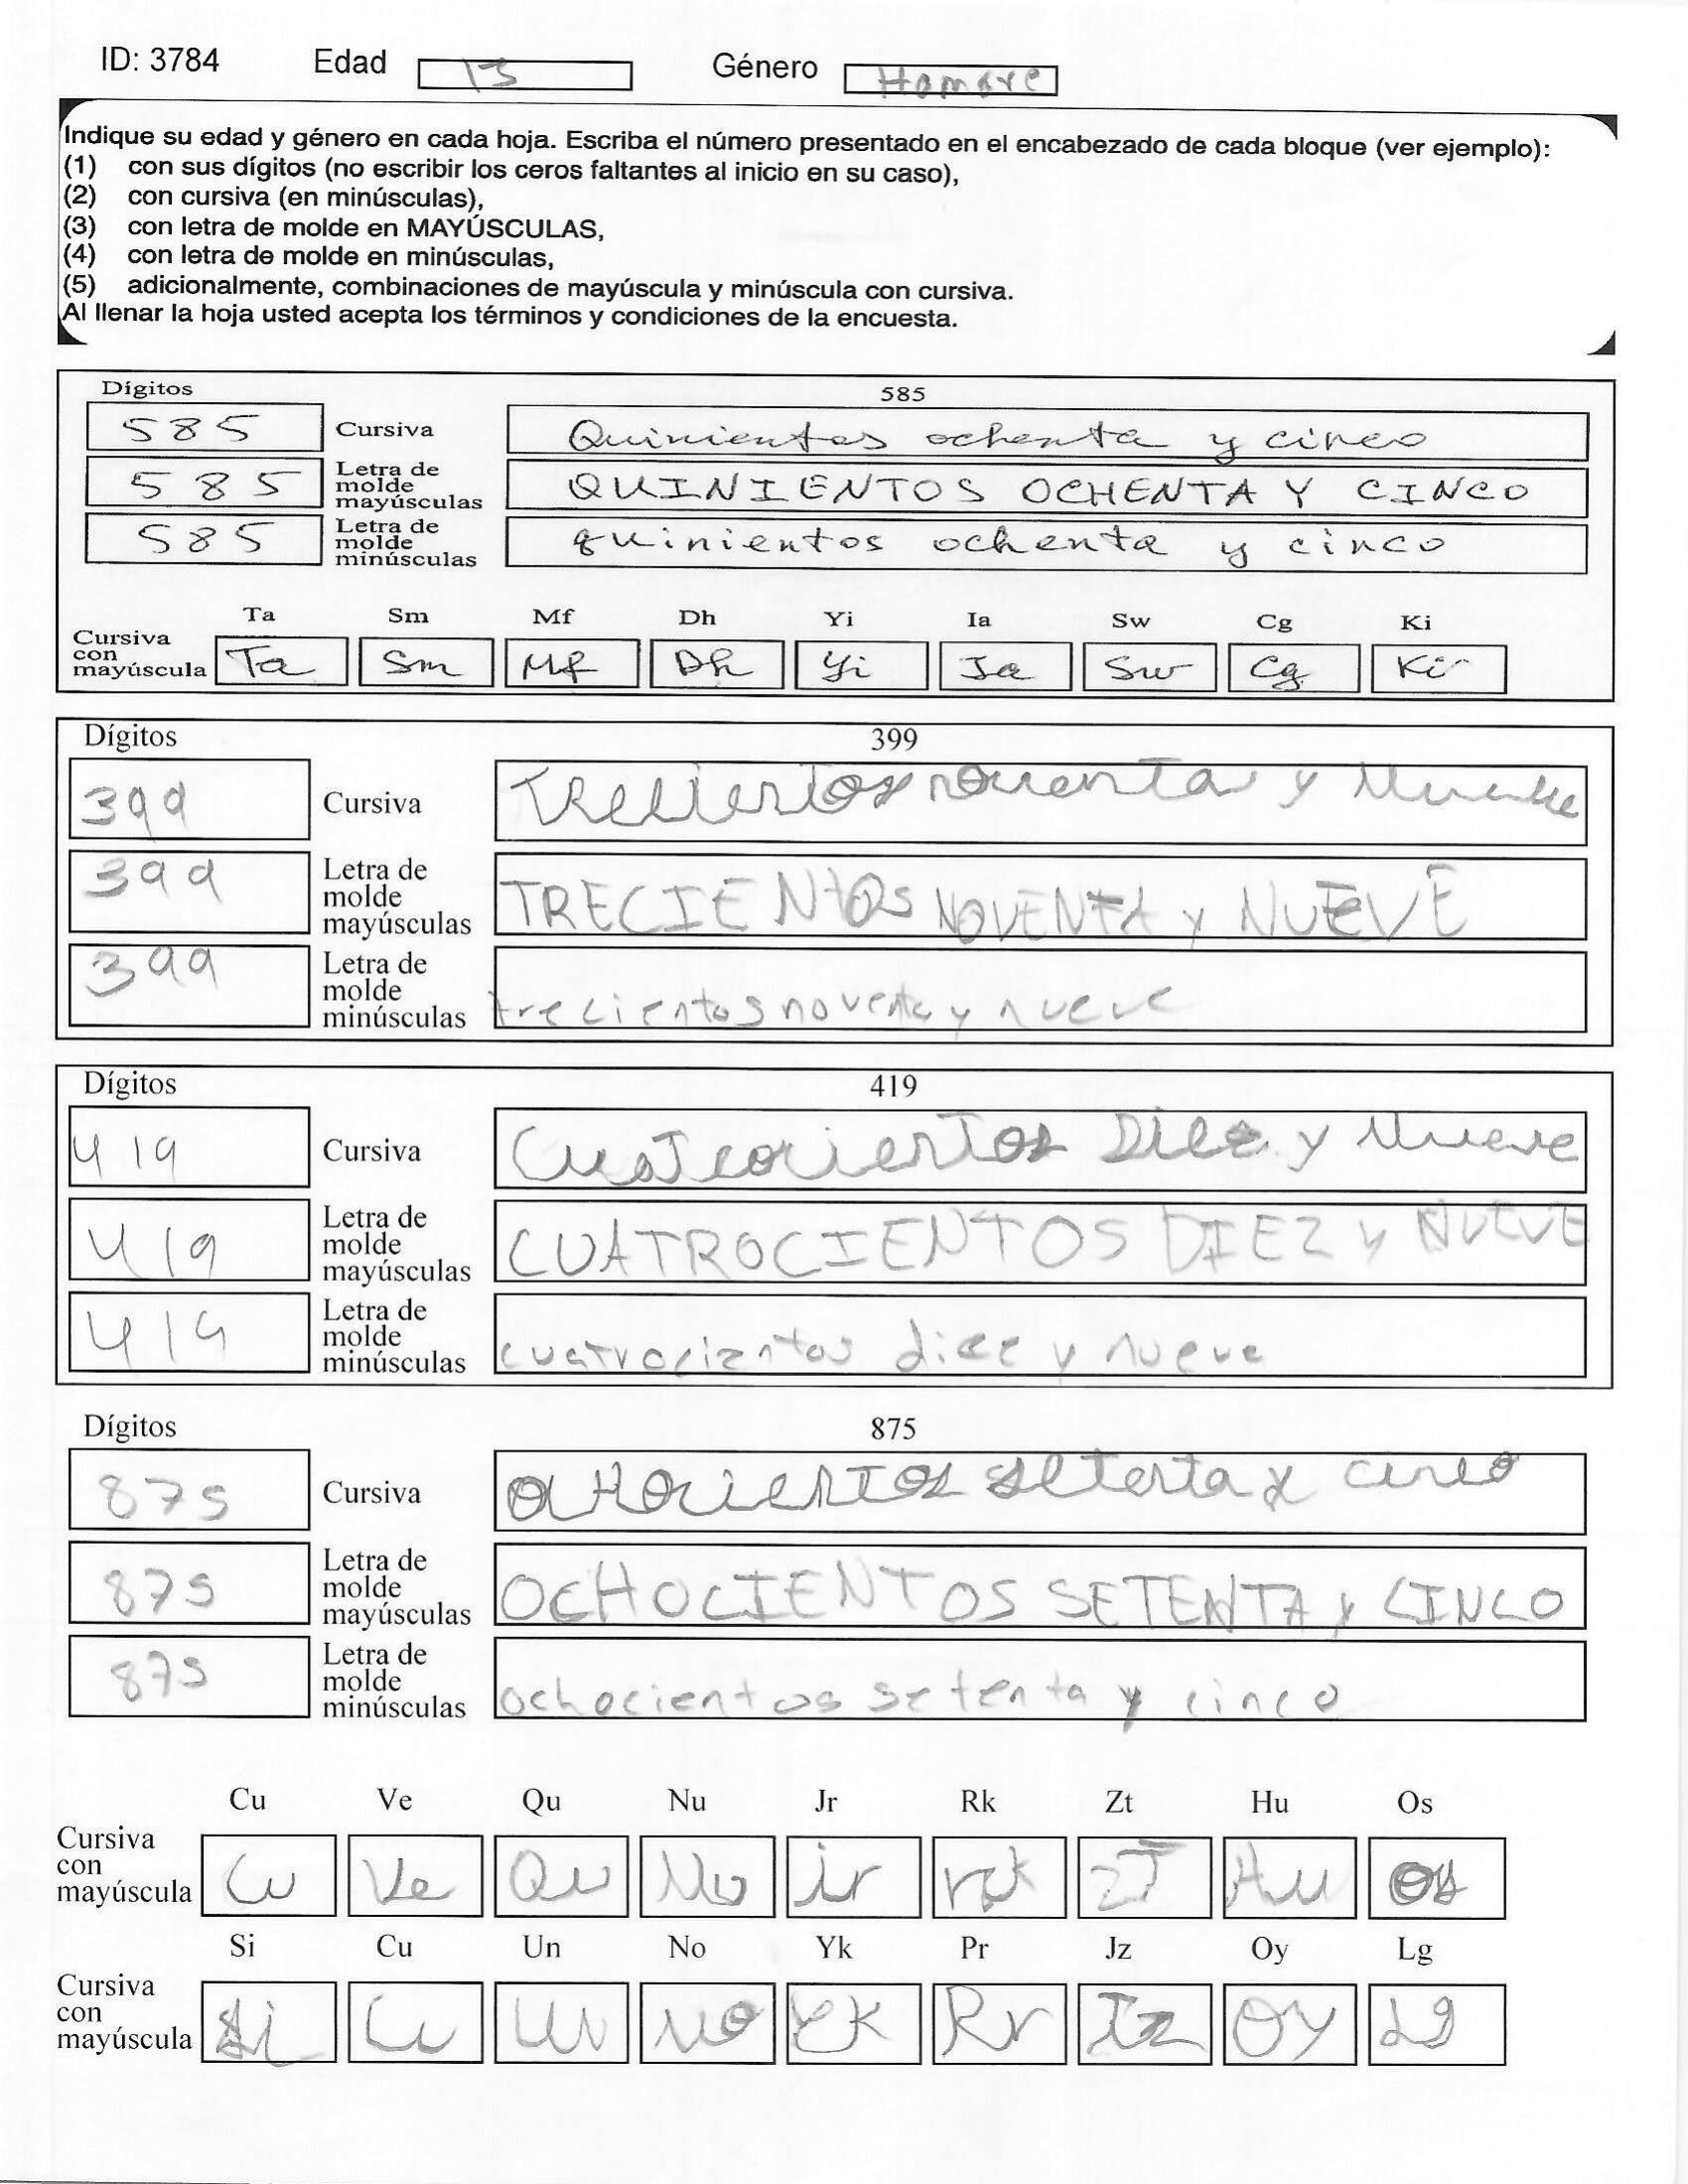 ID: 3784 Edad 13 Género Hombre
Indique su edad y género en cada hoja. Escriba el número presentado en el encabezado de cada bloque (ver ejemplo):
(1) con sus dígitos (no escribir los ceros faltantes al inicio en su caso),
(2) con cursiva (en minúsculas),
(3) con letra de molde en MAYÚSCULAS,
(4) con letra de molde en minúsculas,
(5) adicionalmente, combinaciones de mayúscula y minúscula con cursiva.
Al llenar la hoja usted acepta los términos y condiciones de la encuesta.
Dígitos 585
585 Cursiva Quinientos ochenta y cinco
585 Letra de molde mayúsculas QUINIENTOS OCHENTA Y CINCO
585 Letra de molde minúsculas quinientos ochenta y cinco
Ta Sm Mf Dh Yi Ia Sw Cg Ki
Cursiva con mayúscula Ta Sm Mf Dh Yi Ia Sw Cg Ki
Dígitos 399
399 Cursiva Trecientos noventa y Nueve
399 Letra de molde mayúsculas TRECIENtOS NOVENTA y NUEVE
399 Letra de molde minúsculas trecientos noventa y nueve
Dígitos 419
419 Cursiva Cuatrocientos Diez y Nueve
419 Letra de molde mayúsculas CUATROCIENTOS DIEZ y NUEVE
419 Letra de molde minúsculas cuatrocientos diez y nueve
Dígitos 875
875 Cursiva ochocientos setenta y cinco
875 Letra de molde mayúsculas OCHOCIENTOS SETENTA y CINCO
875 Letra de molde minúsculas ochocientos setenta y cinco
Cu Ve Qu Nu Jr Rk Zt Hu Os
Cursiva con mayúscula Cu Ve Qu Nu jr rk zT Hu Os
Si Cu Un No Yk Pr Jz Oy Lg
Cursiva con mayúscula Si Cu Un No Yk Rr Iz Oy Lg